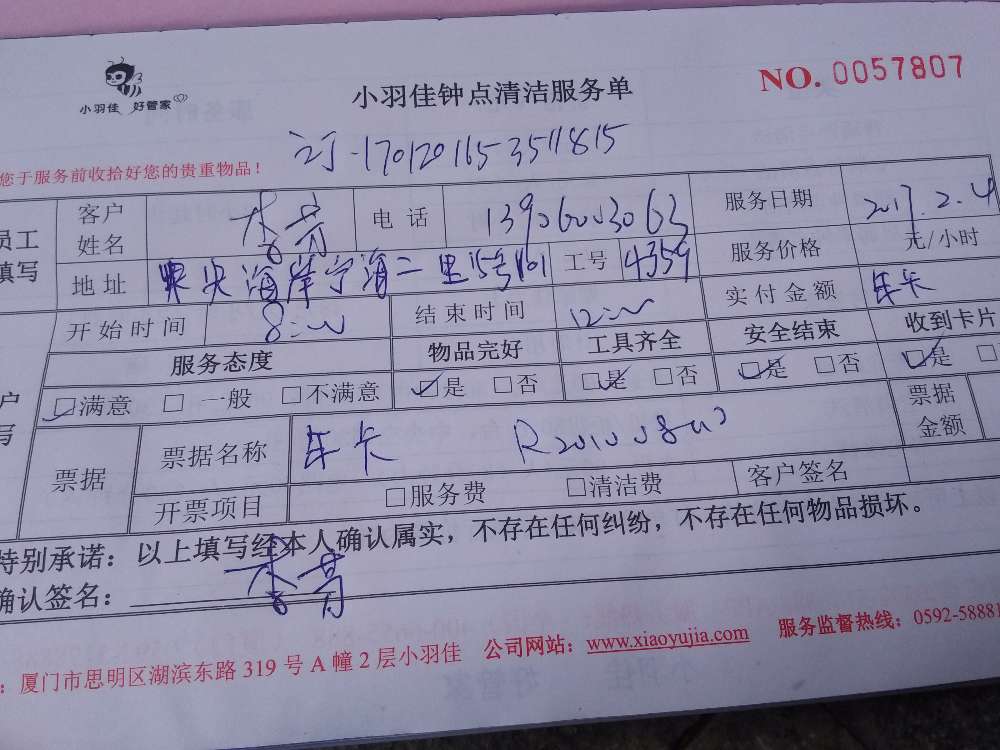 小羽佳 好管家
小羽佳钟点清洁服务单
NO. 0057807
订-1701201653511815
您于服务前收拾好您的贵重物品！
员工
填写
客户
姓名
电 话 13906003063 服务日期 2017.2.4
地 址 央央海岸宁海二里15号1101 工号 4359 服务价格 元/小时
开 始 时 间 8:00 结 束 时 间 12:00 实 付 金 额 年卡
服务态度 物品完好 工具齐全 安全结束 收到卡片
户
写
☑满意 □ 一般 □不满意 ☑是 □否 ☑是 □否 ☑是 □否 ☑是 □
票据 票据名称 年卡 票据
金额
开票项目 □服务费 □清洁费 客户签名
特别承诺：以上填写经本人确认属实，不存在任何纠纷，不存在任何物品损坏。
确认签名：
：厦门市思明区湖滨东路 319 号 A 幢 2 层小羽佳 公司网站：www.xiaoyujia.com 服务监督热线：0592-58881